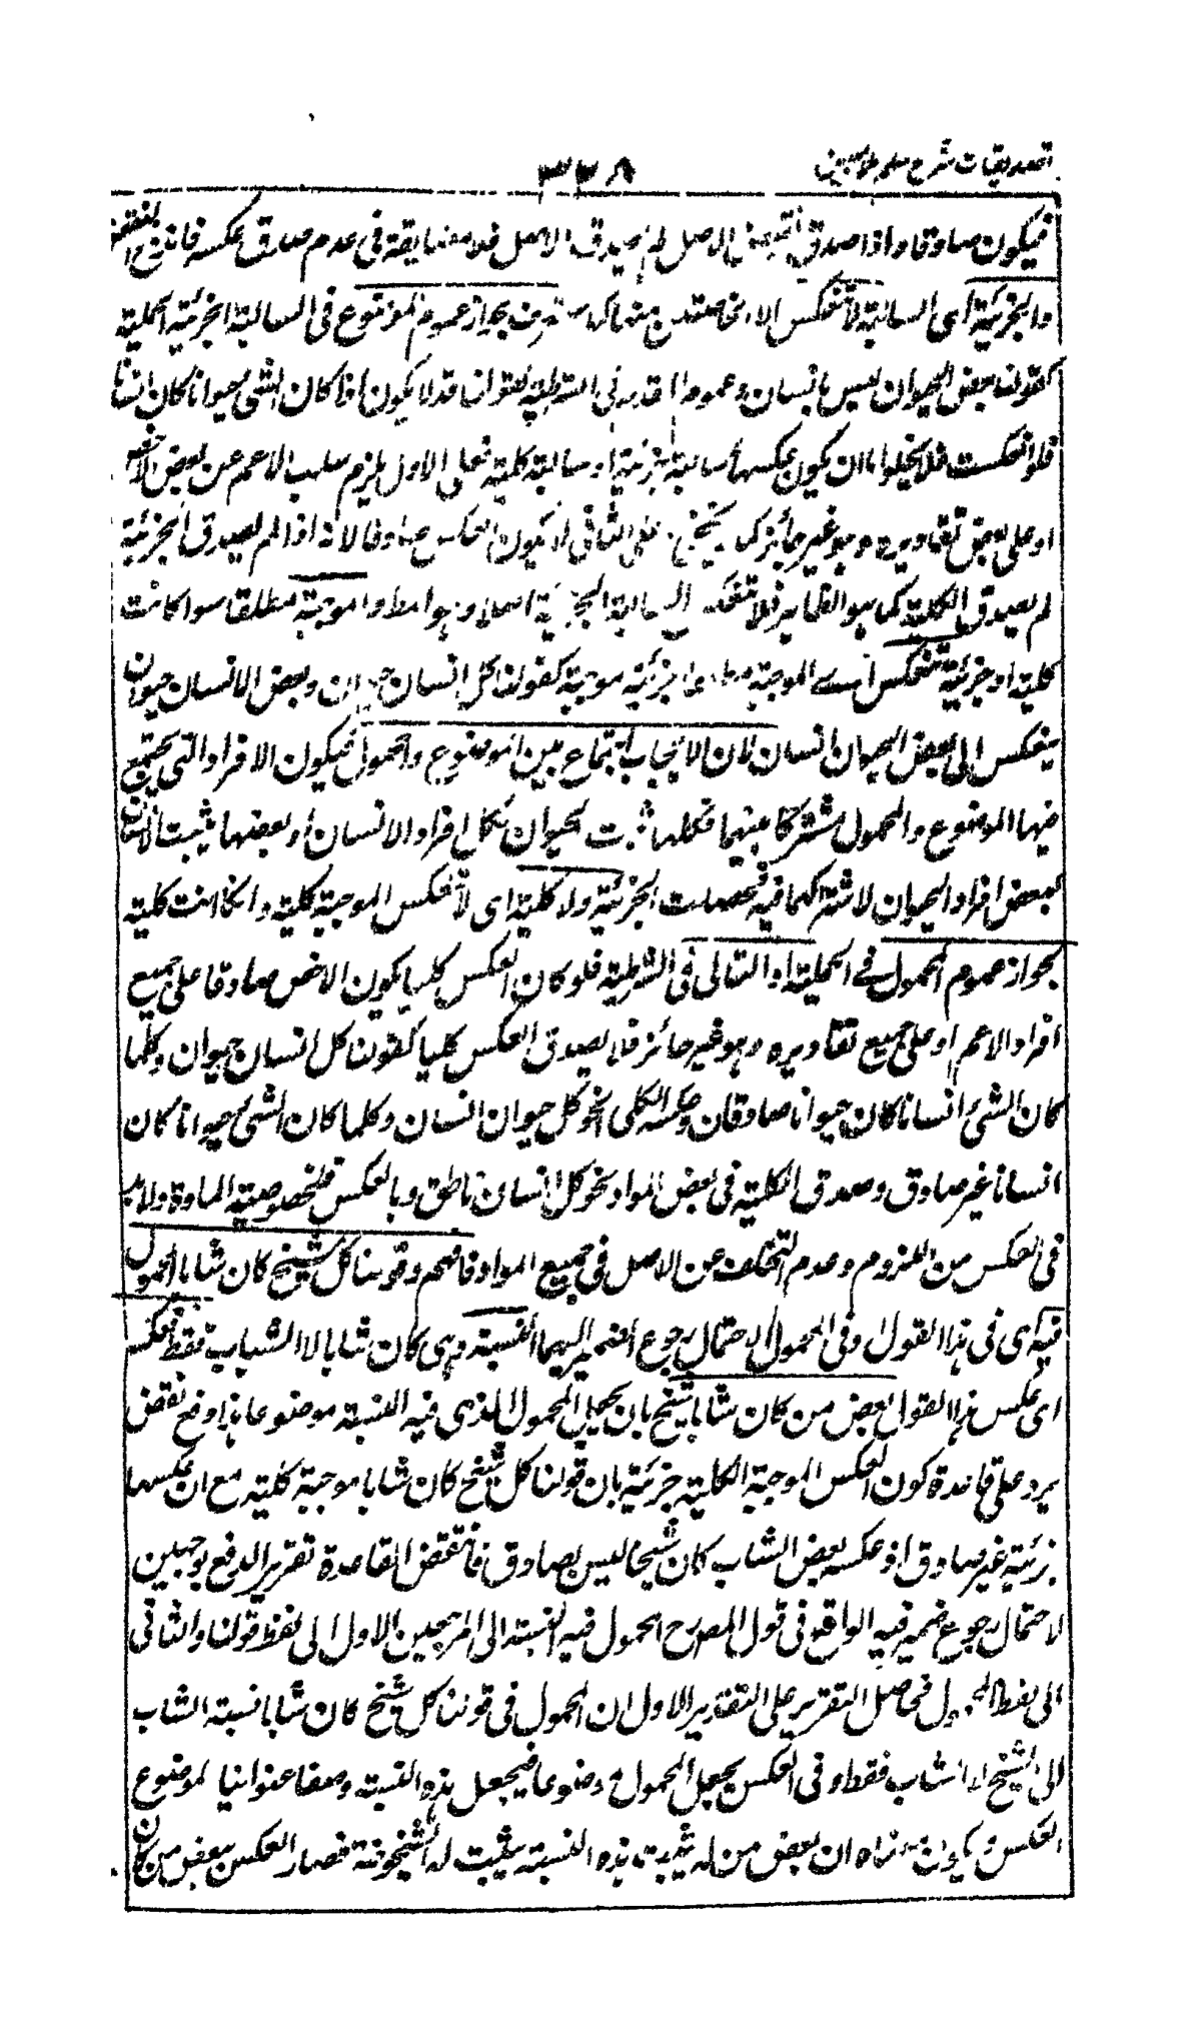 تصديقات شرح سلم ملا مبين
٣٢٨
فيكون صادقا واذا صدق نقيض الاصل لم يصدق الاصل فلا مضايقة فى عدم صدق عكسه فاندفع النقض
والجزئية اى السالبة لا تنعكس الا فى الخاصتين بجواز عموم الموضوع فى السالبة الجزئية الحملية
كقولنا بعض الحيوان ليس بانسان وعموم المقدم فى الشرطية كقولنا قد لا يكون اذا كان الشئ حيوانا كان انسانا
فلو انعكست فلا يخلو اما ان يكون عكسها سالبة جزئية او سالبة كلية فعلى الاول يلزم سلب الاعم عن بعض الاخص
او على بعض تقاديره وهو غير جائز على الثانى لا يكون العكس صادقا لانه اذا لم يصدق الجزئية
لم يصدق الكلية كما هو الظاهر فلا تنعكس السالبة الجزئية اصلا والموجبة مطلقا سواء كانت
كلية او جزئية تنعكس اى الموجبة جزئية موجبة كقولنا كل انسان حيوان وبعض الانسان حيوان
ينعكس الى بعض الحيوان انسان لان الايجاب اجتماع بين الموضوع والمحمول فيكون الافراد التى يجتمع
فيها الموضوع والمحمول مشتركا بينهما فكلما ثبت الحيوان لكل افراد الانسان او بعضها يثبت الانسان
لبعض افراد الحيوان لاشتراكهما فيه فحصلت الجزئية ولا كلية اى لا تنعكس الموجبة كلية وان كانت كلية
لجواز عموم المحمول فى الحملية او التالى فى الشرطية فلو كان العكس كليا يكون الاخص صادقا على جميع
افراد الاعم او على جميع تقاديره وهو غير جائز فلا يصدق العكس كليا كقولنا كل انسان حيوان وكلما
كان الشئ انسانا كان حيوانا صادقان وعكسه الكلى نحو كل حيوان انسان وكلما كان الشئ حيوانا كان
انسانا غير صادق وصدق الكلية فى بعض المواد نحو كل انسان ناطق وبالعكس فلخصوصية المادة ولابد
فى العكس من اللزوم وعدم التخلف عن الاصل فى جميع المواد فافهم وقولنا كل شيخ كان شابا المحمول
فيه اى فى هذا القول او فى المحمول لاحتمال رجوع الضمير اليهما النسبة وهى كان شابا لا الشباب فقط فعكسه
اى عكس هذا القول بعض من كان شابا شيخ بان يجعل المحمول الذى فيه النسبة موضوعا هذا دفع نقض
يرد على قاعدة كون العكس الموجبة الكلية جزئية بان قولنا كل شيخ كان شابا موجبة كلية مع ان عكسها
جزئية غير صادق اذ عكسه بعض الشاب كان شيخا ليس بصادق فانتقض القاعدة تقرير الدفع بوجهين
لاحتمال رجوع ضمير فيه الواقع فى قول المصرح المحمول فيه النسبة الى المرجعين الاول الى لفظ قولنا والثانى
الى لفظ المحمول فحاصل التقرير على التقدير الاول ان المحمول فى قولنا كل شيخ كان شابا نسبة الشاب
الى الشيخ لا الشاب فقط وفى العكس يجعل المحمول موضوعا فيجعل هذه النسبة وصفا عنوانيا لموضوع
العكس ويكون معناه ان بعض من له ثبت هذه النسبة يثبت له الشيخوخة فصار العكس بعض من كان